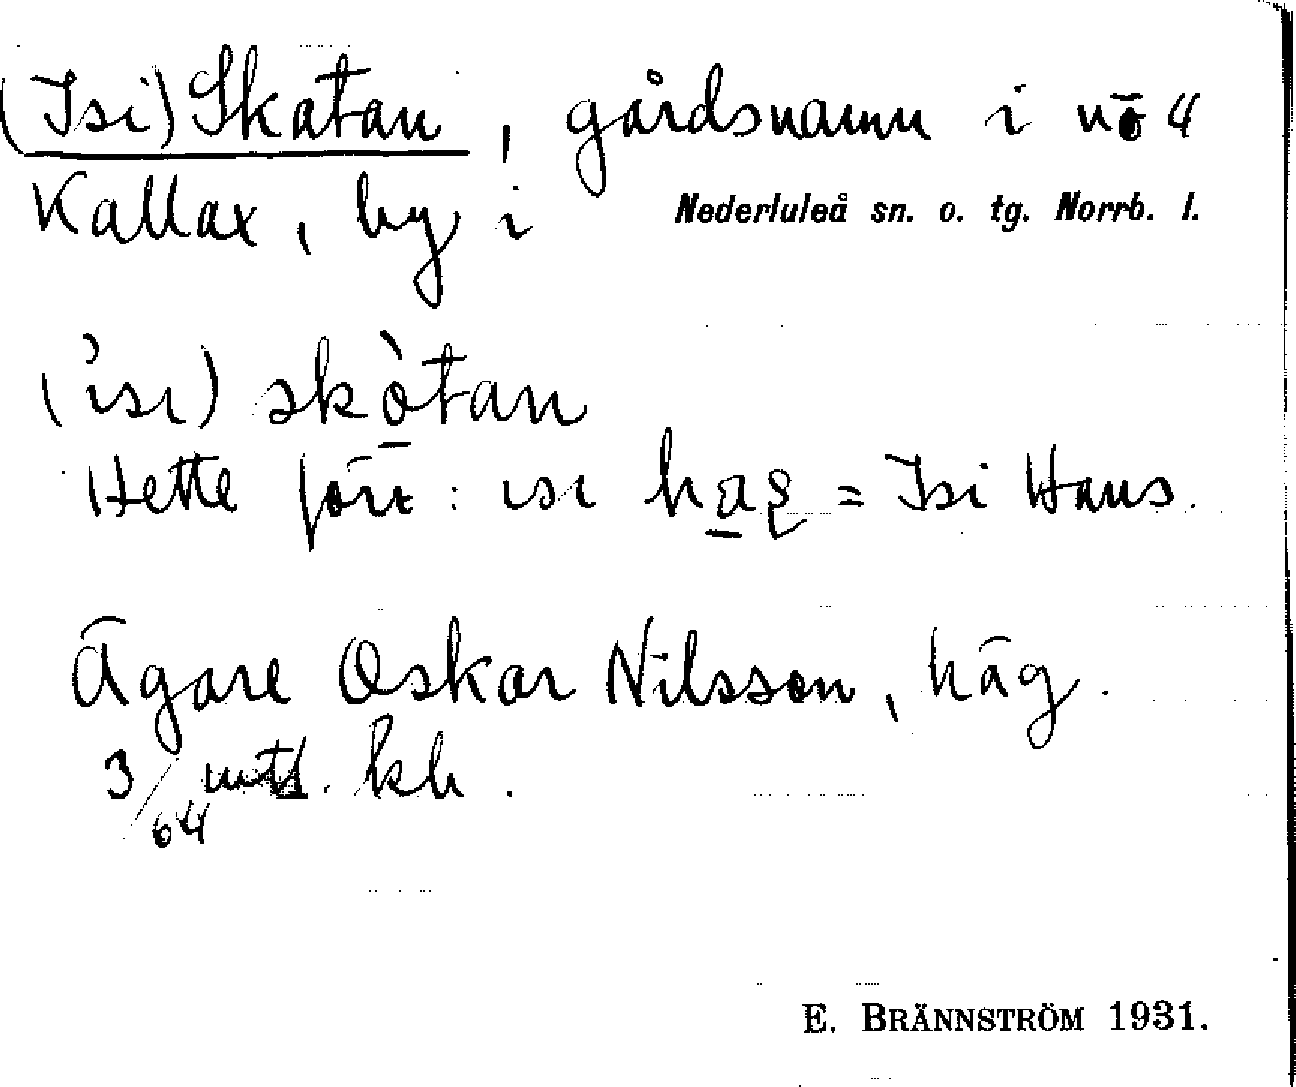 (Isi) Skatan, gårdsnamn i nō 4
Kallax, by i Nederluleå sn. o. tg. Norrb. l.
(ísı) skòtan
Hette förr: ısı = Isi Hans.
Ägare Oskar Nilsson, häg.
3/64 mtl. kh.
E. BRÄNNSTRÖM 1931.